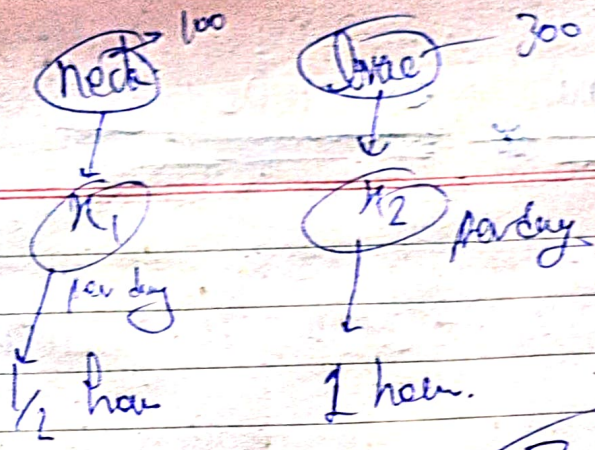 neck 100 brace 300
x1 x2 per day
per day
1/2 hour 1 hour.